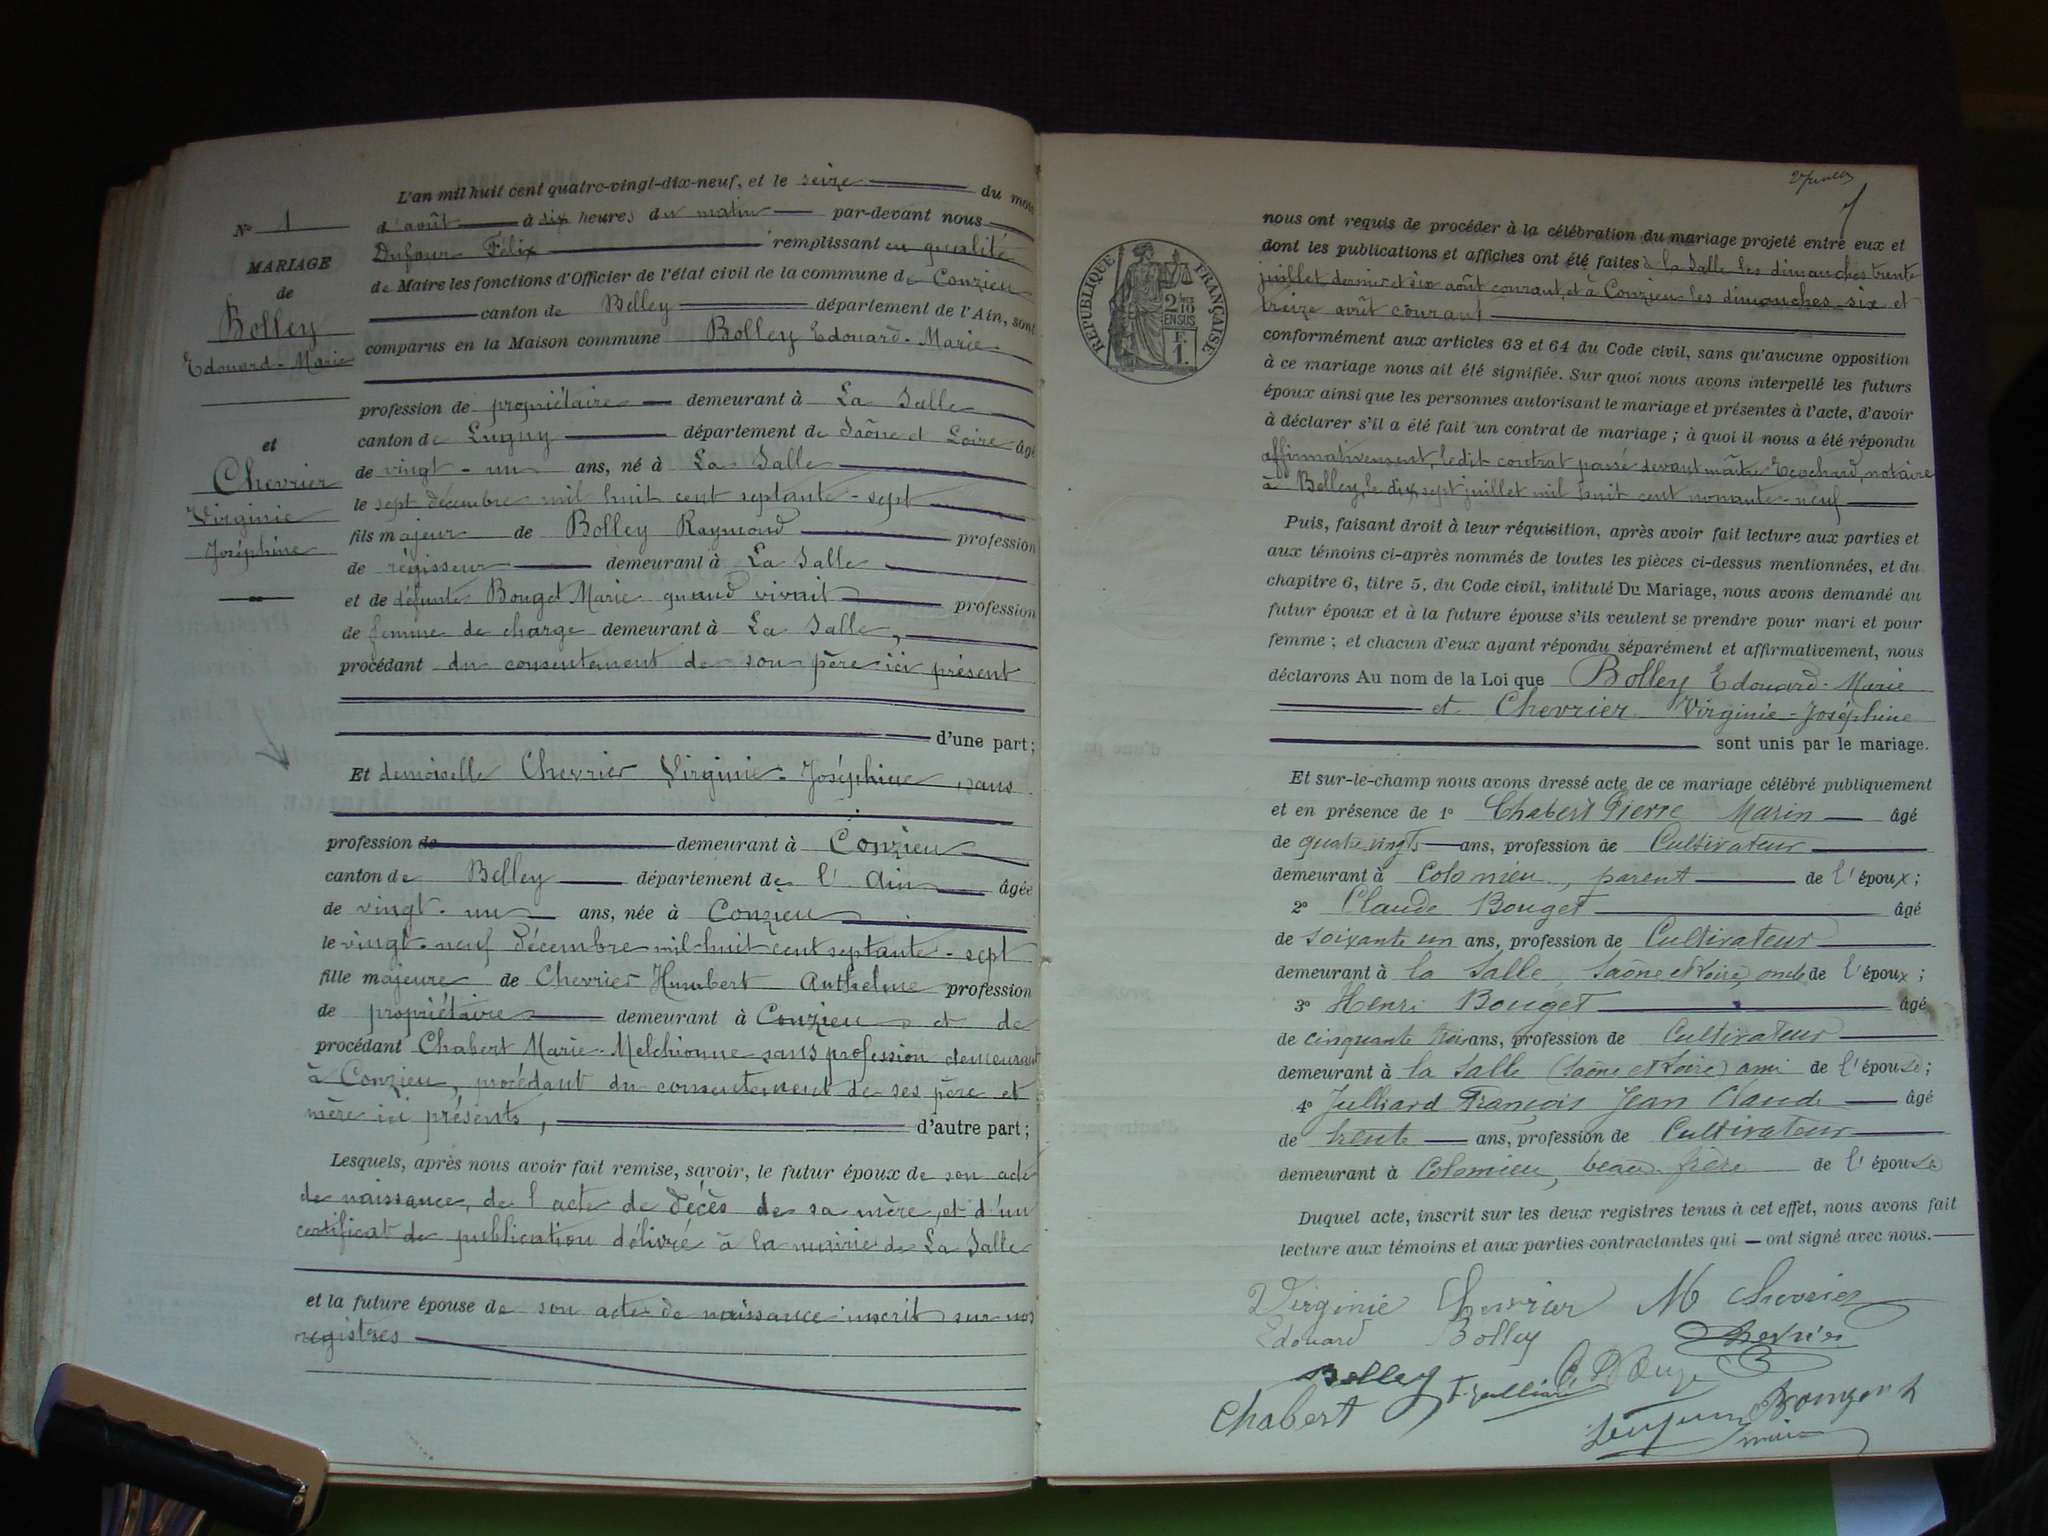 L'an mil huit cent quatre-vingt-dix-neuf, et le seize du mois
d'août à dix heures du matin par-devant nous
Dufour Félix remplissant en qualité
de Maire les fonctions d'Officier de l'état civil de la commune de Conzieu
canton de Belley département de l'Ain, sont
comparus en la Maison commune Bolley Edouard-Marie
profession de propriétaire demeurant à La Salle
canton de Lugny département de Saône et Loire âgé
de vingt-un ans, né à La Salle
le sept décembre mil huit cent septante-sept
fils majeur de Bolley Raymond profession
de régisseur demeurant à La Salle
et de défunte Bouget Marie quand vivait profession
de femme de charge demeurant à La Salle,
procédant du consentement de son père ici présent
d'une part;
Et demoiselle Chevrier Virginie-Joséphine, sans
profession de demeurant à Conzieu
canton de Belley département de l'Ain âgée
de vingt-un ans, née à Conzieu
le vingt-neuf décembre mil huit cent septante-sept
fille majeure de Chevrier Humbert Anthelme profession
de propriétaire demeurant à Conzieu et de
procédant Chabert Marie-Melchionne sans profession demeurant
à Conzieu, procédant du consentement de ses père et
mère ici présents, d'autre part;
Lesquels, après nous avoir fait remise, savoir, le futur époux de son acte
de naissance, de l'acte de décès de sa mère, et d'un
certificat de publication délivré à la mairie de La Salle
et la future épouse de son acte de naissance inscrit sur nos
registres
N° 1
MARIAGE
de
Bolley
Edouard-Marie
et
Chevrier
Virginie
Joséphine
nous ont requis de procéder à la célébration du mariage projeté entre eux et
dont les publications et affiches ont été faites à la Salle les dimanches trente
juillet dernier et six août courant, et à Conzieu les dimanches six et
treize août courant
conformément aux articles 63 et 64 du Code civil, sans qu'aucune opposition
à ce mariage nous ait été signifiée. Sur quoi nous avons interpellé les futurs
époux ainsi que les personnes autorisant le mariage et présentes à l'acte, d'avoir
à déclarer s'il a été fait un contrat de mariage; à quoi il nous a été répondu
affirmativement, ledit contrat passé devant maître Ecochard, notaire
à Belley, le dix sept juillet mil huit cent nonante-neuf
Puis, faisant droit à leur réquisition, après avoir fait lecture aux parties et
aux témoins ci-après nommés de toutes les pièces ci-dessus mentionnées, et du
chapitre 6, titre 5, du Code civil, intitulé Du Mariage, nous avons demandé au
futur époux et à la future épouse s'ils veulent se prendre pour mari et pour
femme; et chacun d'eux ayant répondu séparément et affirmativement, nous
déclarons Au nom de la Loi que Bolley Edouard-Marie
et Chevrier Virginie-Joséphine
sont unis par le mariage.
Et sur-le-champ nous avons dressé acte de ce mariage célébré publiquement
et en présence de 1° Chabert Pierre Marin âgé
de quatre vingts ans, profession de Cultivateur
demeurant à Colomieu, parent de l'époux;
2° Claude Bouget âgé
de soixante un ans, profession de Cultivateur
demeurant à la Salle, Saône et Loire, oncle de l'époux;
3° Henri Bouget âgé
de cinquante trois ans, profession de Cultivateur
demeurant à la Salle (Saône et Loire) ami de l'épouse;
4° Julliard François Jean Claude âgé
de trente ans, profession de Cultivateur
demeurant à Colomieu, beau-frère de l'épouse
Duquel acte, inscrit sur les deux registres tenus à cet effet, nous avons fait
lecture aux témoins et aux parties contractantes qui ont signé avec nous.
Virginie Chevrier M Chevrier
Edouard Bolley Chevrier
Bolley F. Julliard
Chabert
REPUBLIQUE FRANÇAISE
2/10
EN SUS
F.
1.